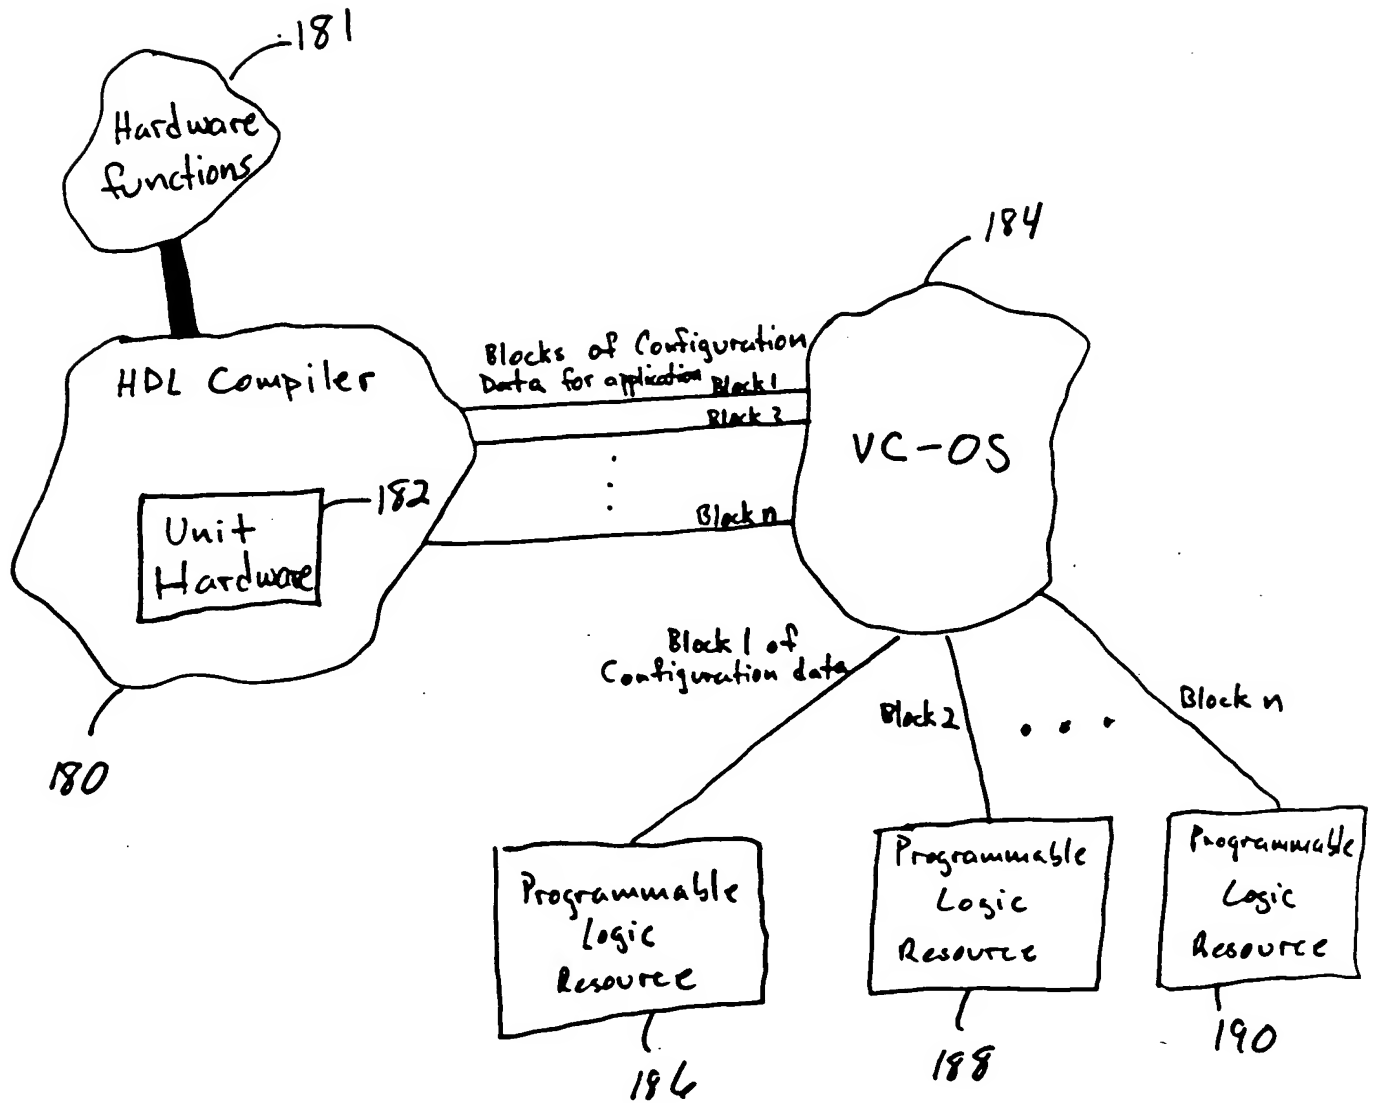 181
Hardware
functions
184
HDL Compiler
Blocks of Configuration
Data for application
Block 1
Block 2
VC-OS
182
Unit
Hardware
Block n
Block 1 of
Configuration data
Block 2
Block n
180
Programmable
Logic
Resource
Programmable
Logic
Resource
Programmable
Logic
Resource
186
188
190